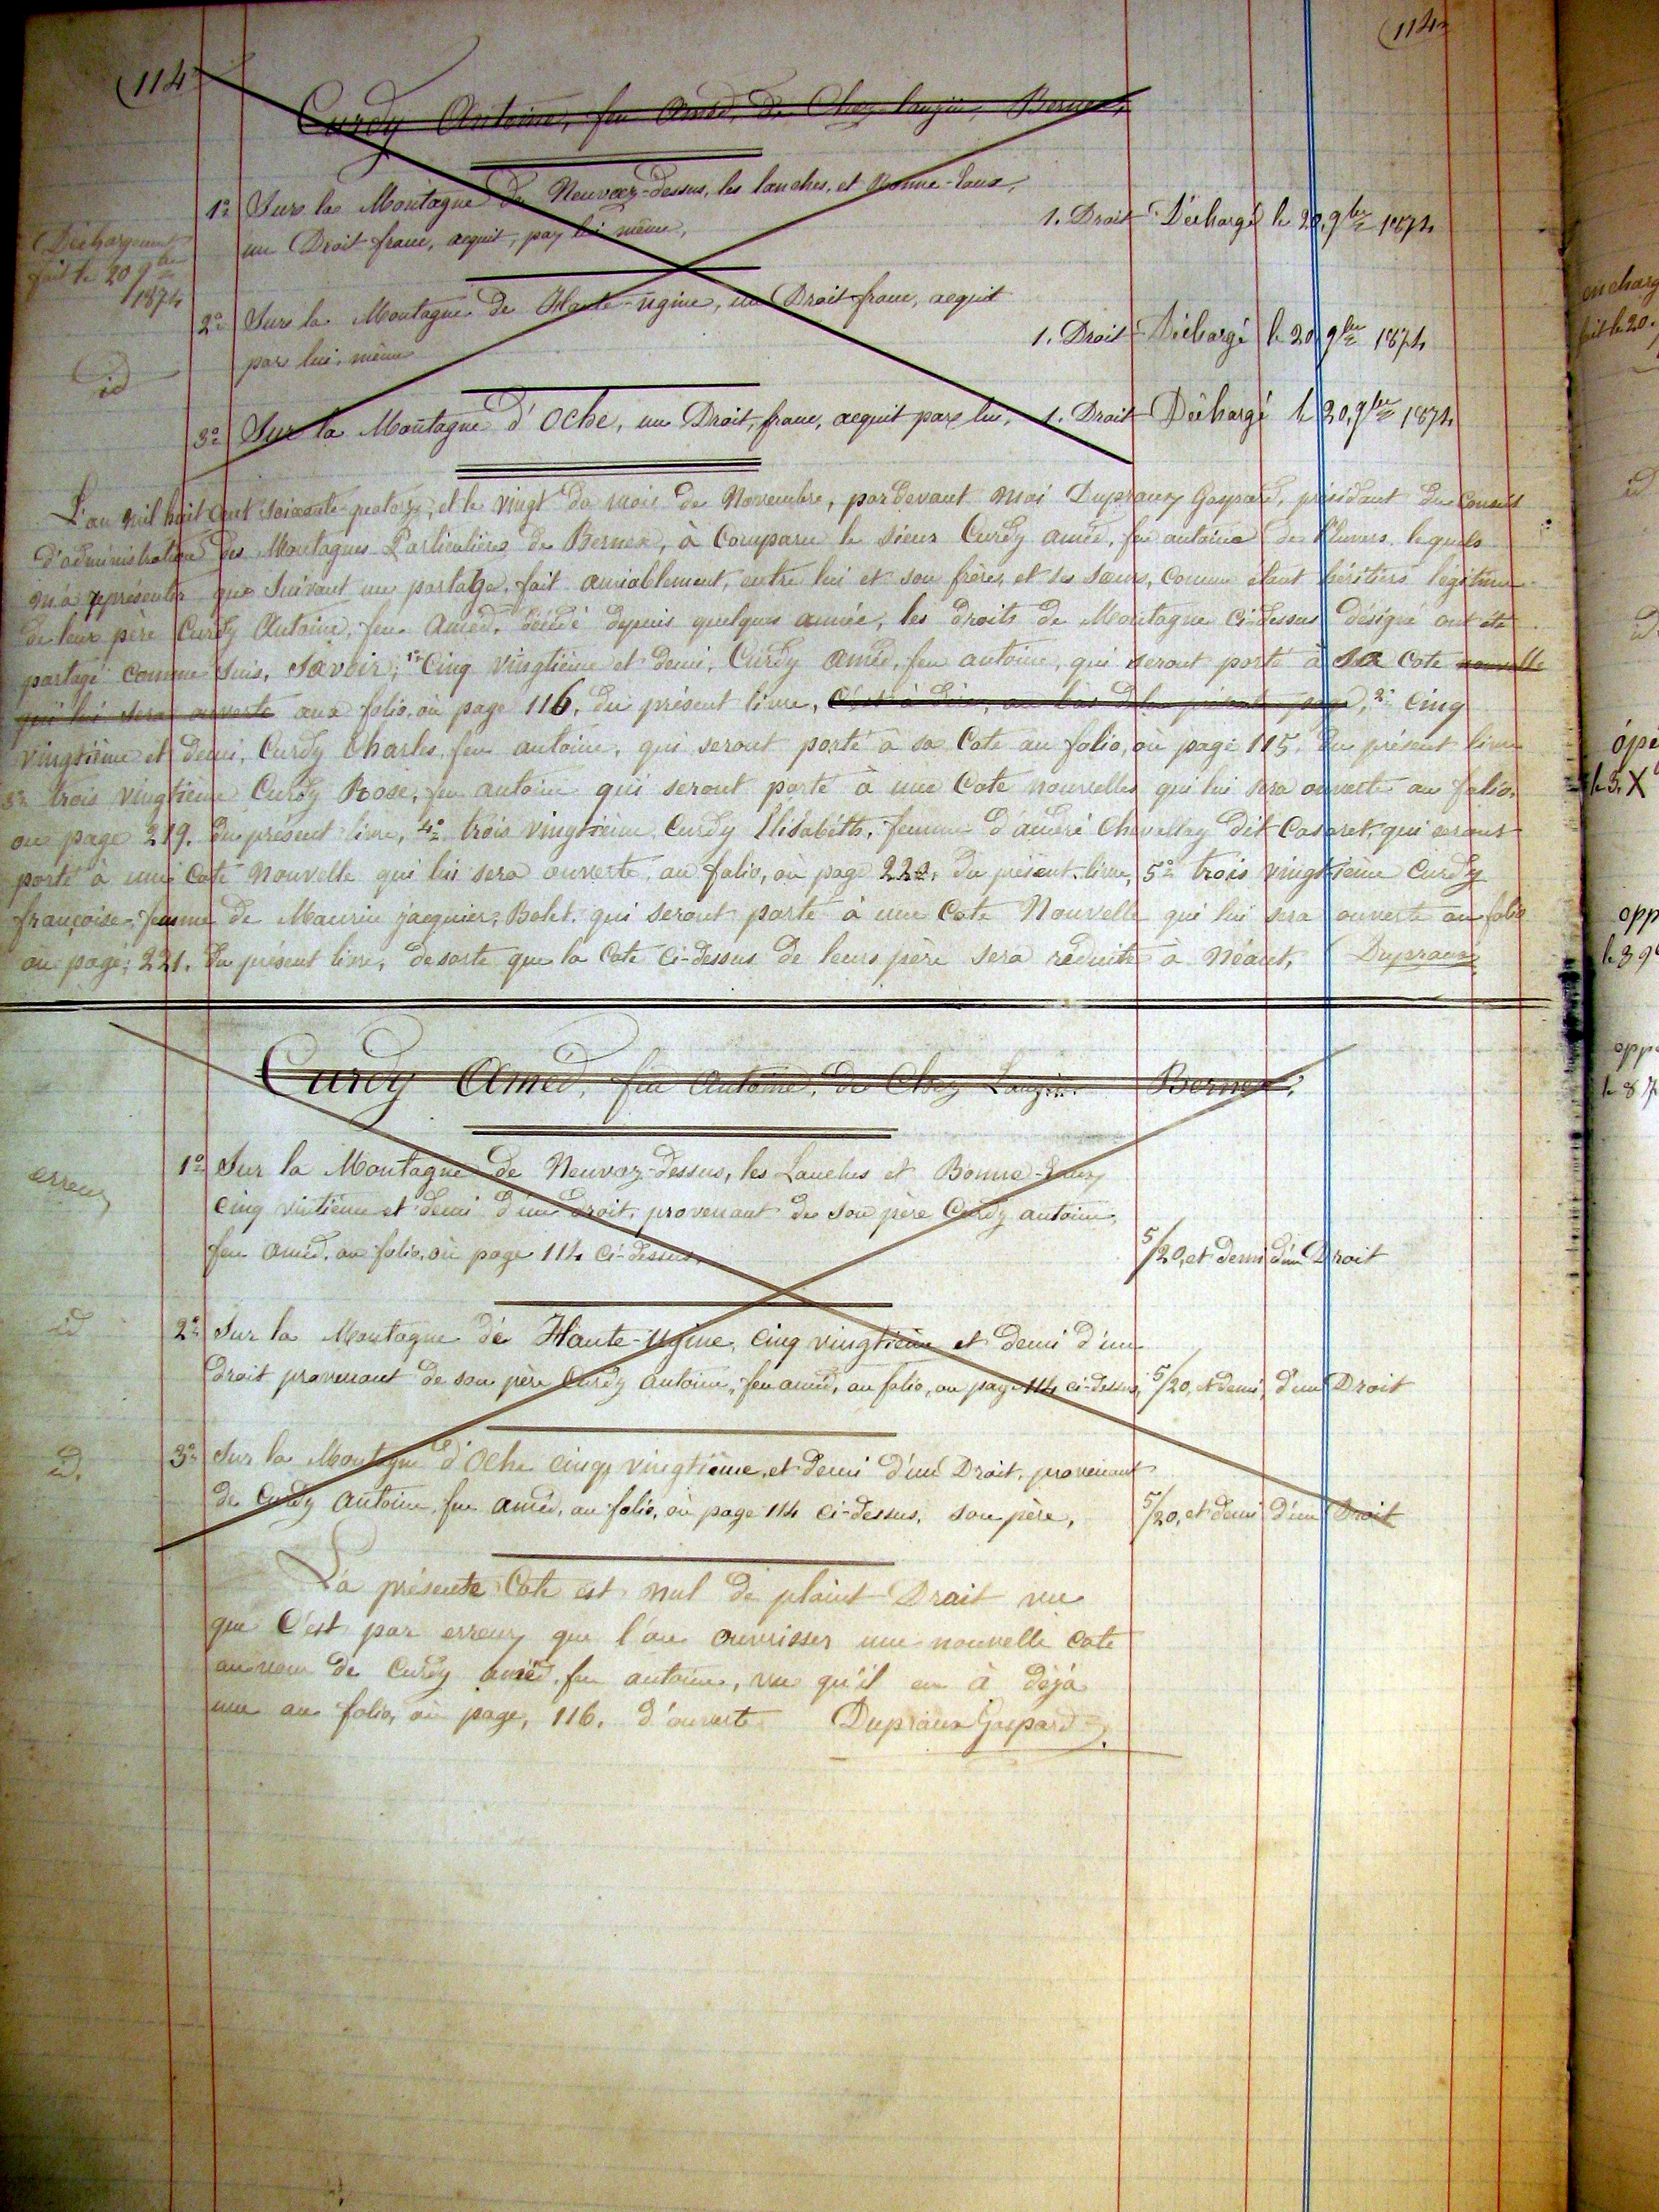 (114
(114
Curdy Antoine, feu Amed, de Chez Laugin, Bernex,
1º Sur la Montagne de Neuvaz-dessus, les lanches, et Bonne-Eaux,
un Droit franc, acquit, par lui même, 1. Droit Déchargé le 20, 9bre 1874
Déchargement
fait le 20 9bre
1874
2º Sur la Montagne de Haute-ugine, un Droit franc, acquit
par lui, même 1. Droit Déchargé le 20 9bre 1874
id
3º Sur la Montagne d'Oche, un Droit, franc, acquit par lui, 1. Droit Déchargé le 20, 9bre 1874
L'an mil huit cent soixante-quatorze, et le vingt du mois de Novembre, pardevant moi Dupraux Gaspard, président du Conseil
d'administration des Montagnes Particulières de Bernex, à Comparu le sieur Curdy amed, feu antoine de lequels
m'a représenter que suivant un partage, fait amiablement, entre lui et son frères, et ses sœurs, comme étant héritiers légitime
de leur père Curdy Antoine, feu Amed, décédé depuis quelques année, les droits de Montagne Ci-dessus désigné ont été
partagé comme suis, savoir; 1º Cinq vingtième et demi, Curdy amed, feu antoine, qui seront porté à sa Cote nouvelle
qui lui sera ouverte aux folio, où page 116, du présent livre, c'est à dire, au bas de la présente page, 2º Cinq
vingtième et demi, Curdy Charles, feu antoine, qui seront porté à sa Cote au folio, où page 115, du présent livre
3º trois vingtième Curdy Rose, feu antoine qui seront porté à une Cote nouvelles qui lui sera ouverte au folio,
ou page 219, du présent livre, 4º trois vingtième, Curdy Elisabéth, femme d'andré Chevallay dit Casaret, qui seront
porté à une Cote Nouvelle qui lui sera ouverte, au folio, où page 220, du présent livre, 5º trois vingtième Curdy
françoise, femme de Maurice jacquier, Bolet, qui seront porté à une Cote Nouvelle qui lui sera ouverte au folio
où page; 221. du présent livre, desorte que la Cote Ci-dessus de leurs père sera réduite à Néant, Dupraux
Curdy Amed, feu Antoine, de Chez Laugin. Bernex,
erreur
1º Sur la Montagne de Neuvaz-Dessus, les Lanches et Bonne-Eaux
Cinq vintième et demi d'un droit, provenant de son père Curdy antoine,
feu amed, au folio, où page 114 ci-dessus, 5/20, et demi d'un Droit
id
2º Sur la Montagne de Haute-Ugine, Cinq vingtième et demi d'un
droit provenant de son père Curdy antoine, feu amed, au folio, ou page 114 ci-dessus, 5/20, et demi, d'un Droit
id.
3º Sur la Montagne d'Oche cinq vingtième, et demi d'un Droit, provenant
de Curdy Antoine, feu amed, au folio, où page 114 ci-dessus, son père, 5/20, et demi d'un Droit
La présente Cote est nul de plaint Droit vu
que C'est par erreur que l'on ouvrisser une nouvelle cote
au nom de Curdy amed, feu antoine, vu qu'il en à déjà
une au folio, où page, 116, d'ouverte Dupraux Gaspard
en charg
fait le 20.
id
id.
opé
le 3 X
opp
le 3 9
oppo
le 8